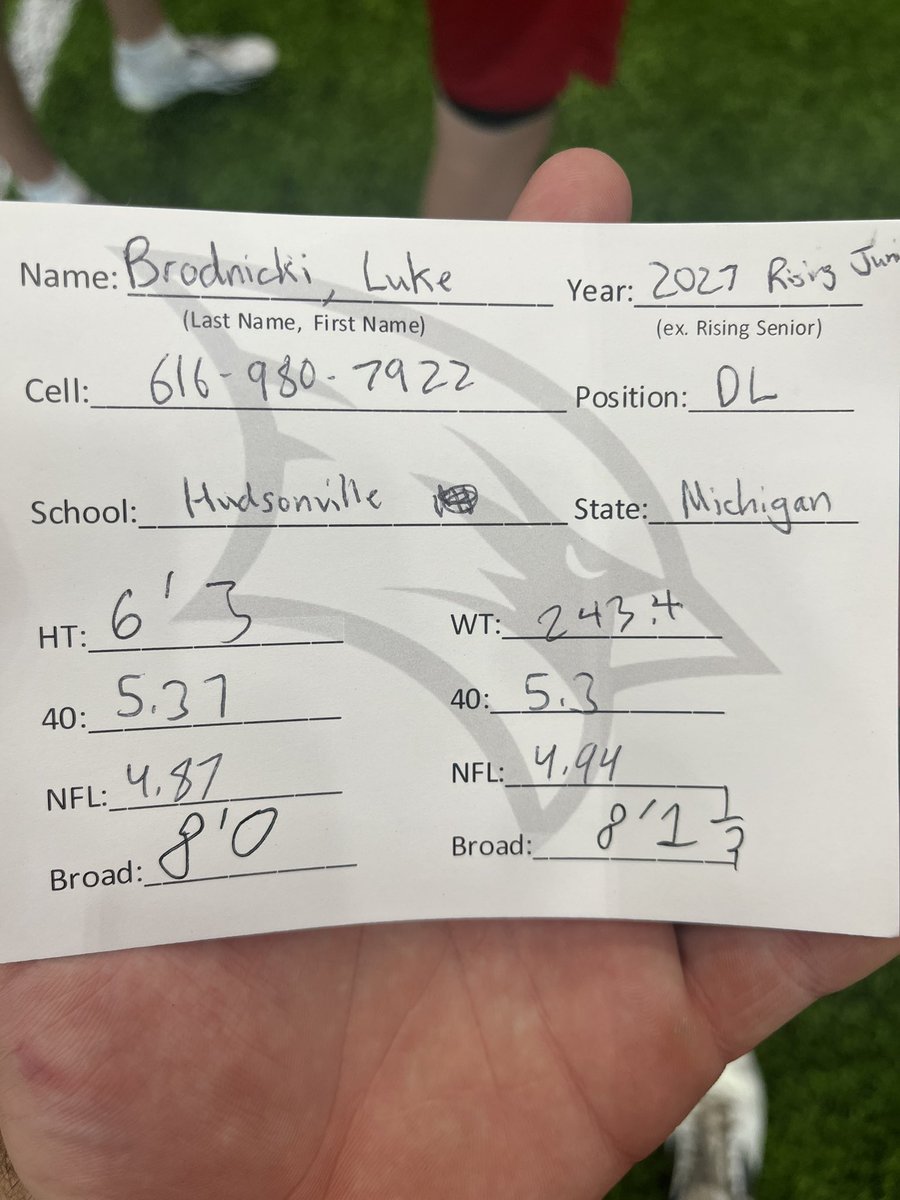 Name: Brodnicki, Luke Year: 2027 Rising Juni
(Last Name, First Name) (ex. Rising Senior)
Cell: 616-980-7922 Position: DL
School: Hudsonville State: Michigan
HT: 6'3 WT: 243.4
40: 5.37 40: 5.3
NFL: 4.87 NFL: 4.94
Broad: 8'0 Broad: 8'1 1/2